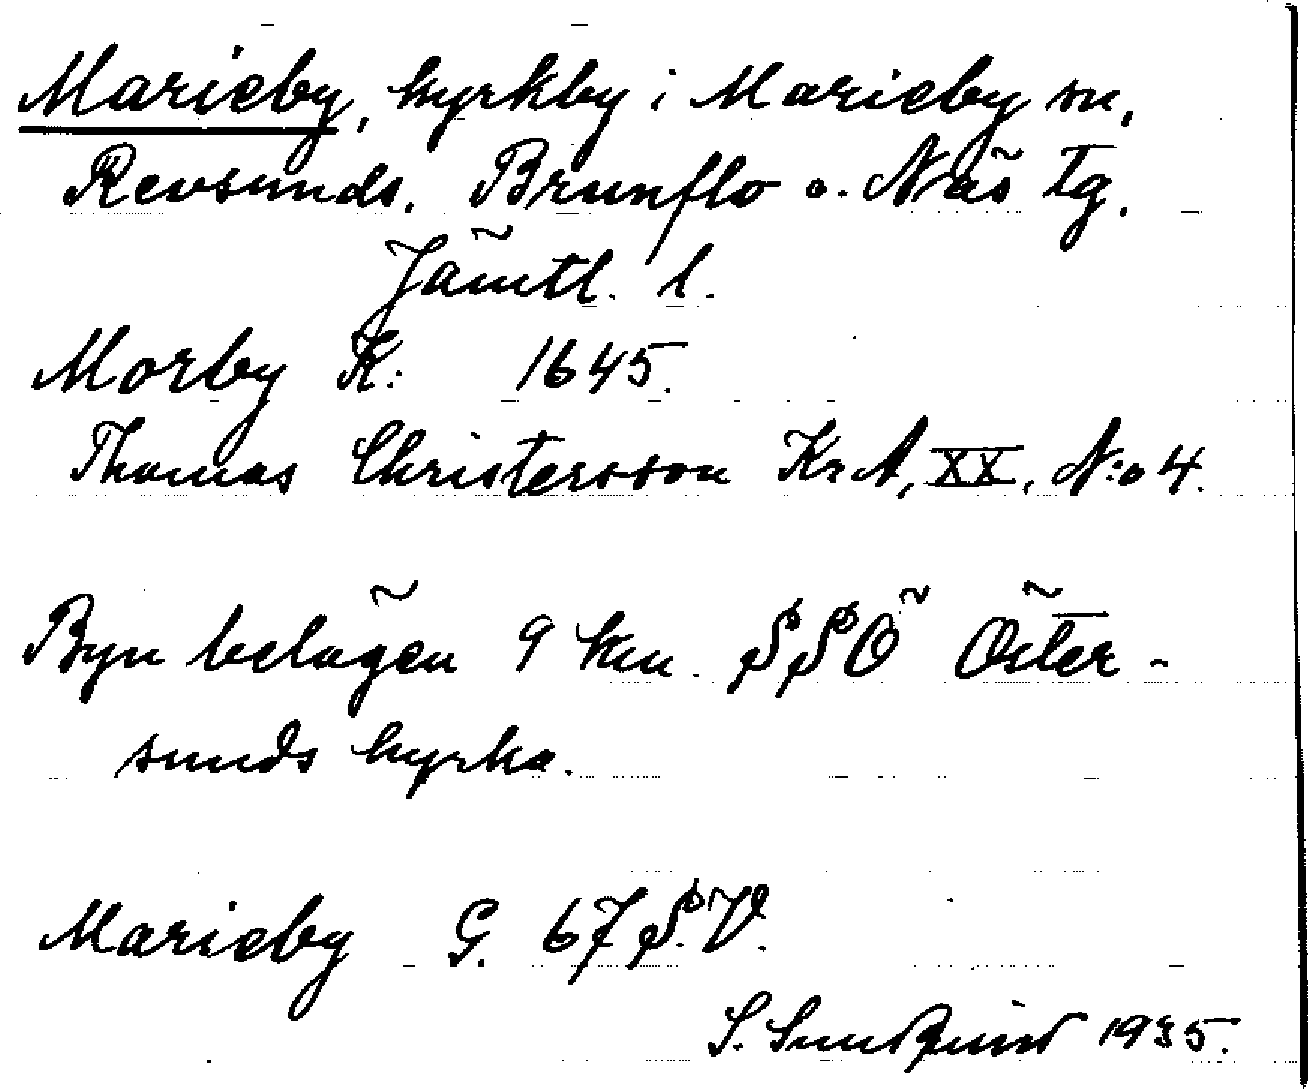 Marieby, kyrkby i Marieby sn,
Revsunds, Brunflo o. Näs tg.
Jämtl. l.
Morby K: 1645.
Thomas Christersson KrA, XX, N:o 4.
Byn belägen 9 km. SSÖ Öster-
sunds kyrka.
Marieby G. 67 S.V.
S. Sundquist 1935.